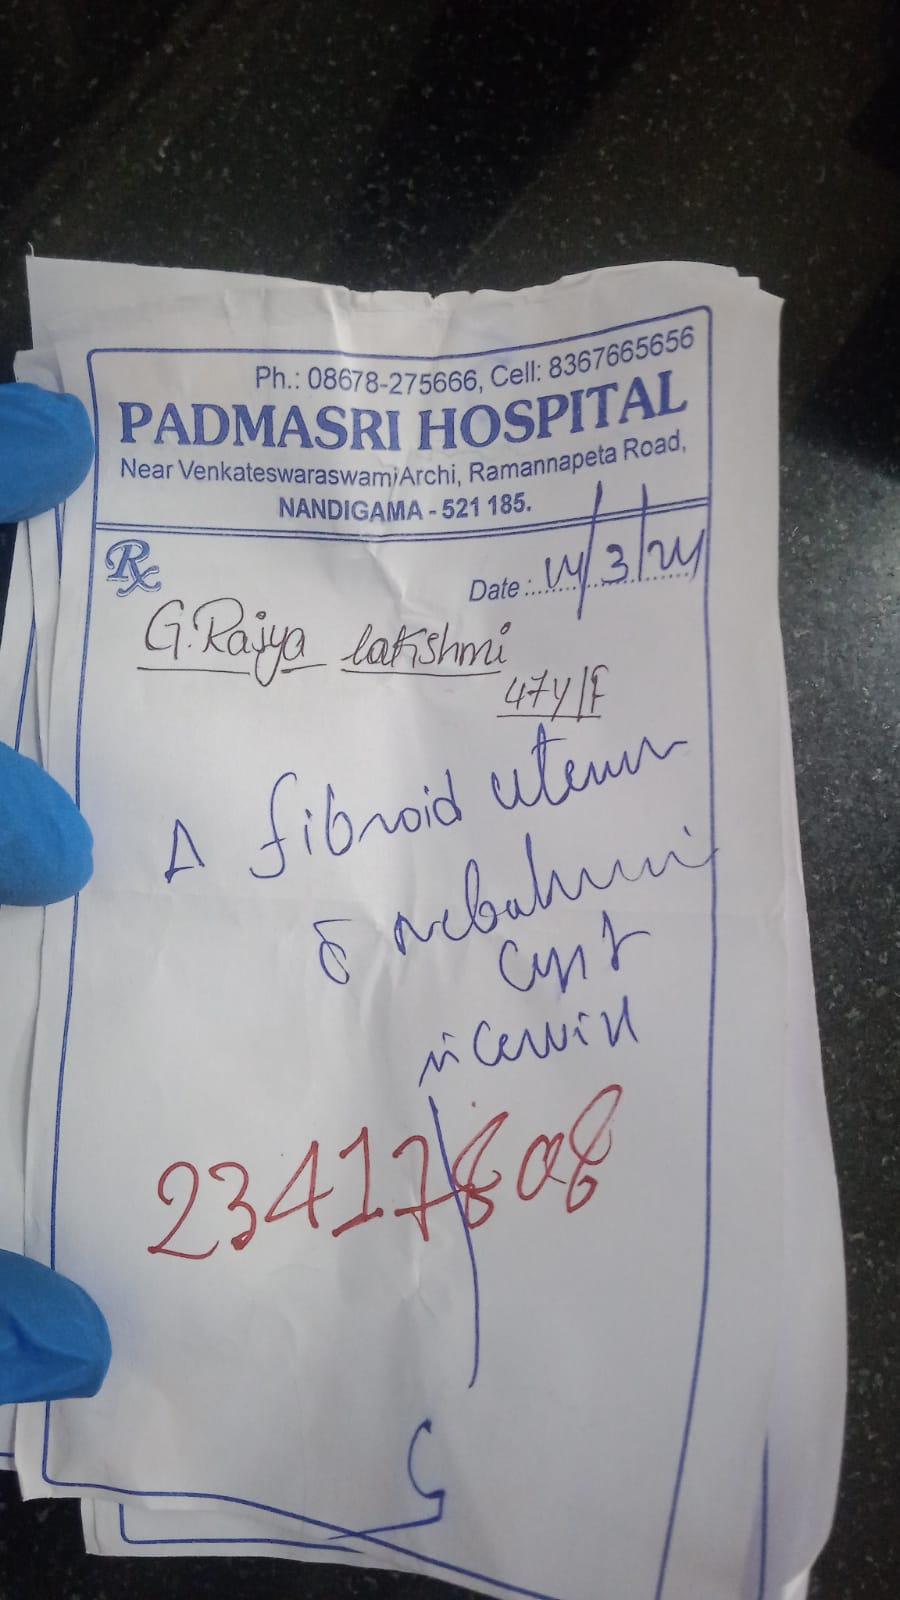 Ph.: 08678-275666, Cell: 8367665656
PADMASRI HOSPITAL
Near Venkateswaraswami Archi, Ramannapeta Road,
NANDIGAMA - 521 185.
Rx
Date : 14/3/24
G. Rajya lakshmi
47y/F
Δ fibroid uterus
c̄
cyst
in cervix
23417808